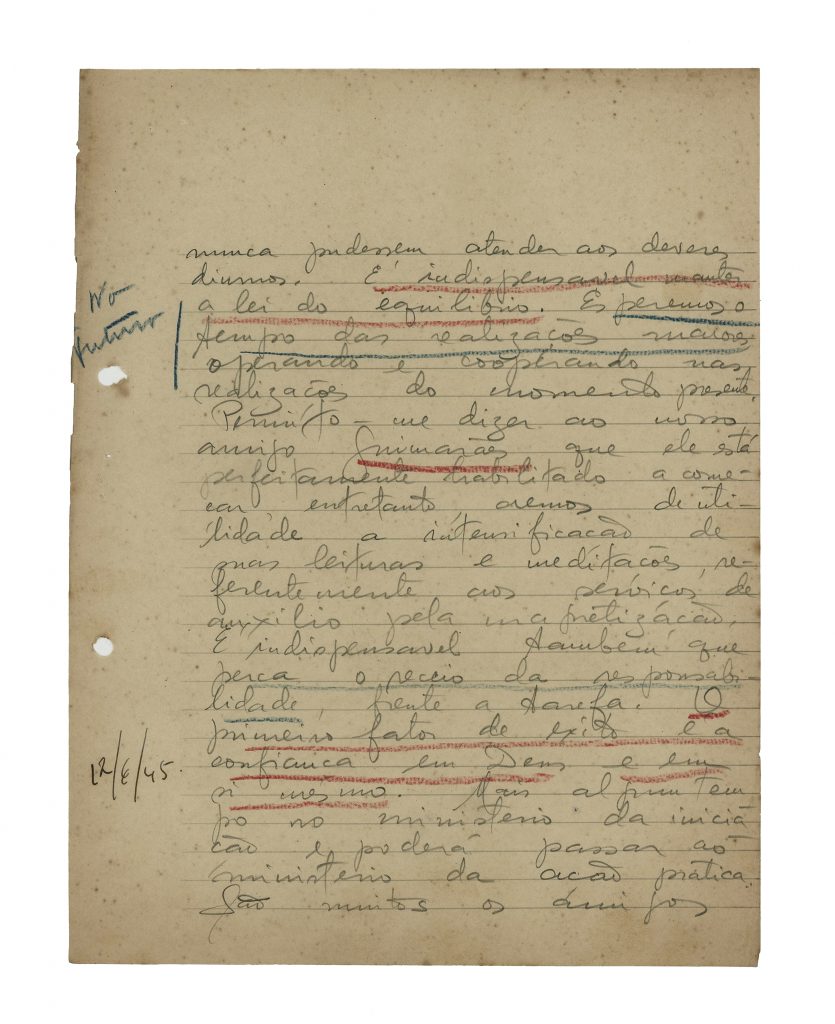 nunca pudessem atender aos deveres
diurnos. E' indispensavel manter
a lei do equilibrio. Esperemos o
No
futuro
tempo das realizações maiores
operando e cooperando nas
realizações do momento presente.
Permito-me dizer ao nosso
amigo Guimarães que ele está
perfeitamente habilitado a come-
çar, entretanto, cremos de uti-
lidade a intensificacão de
suas leituras e meditacões, re-
ferentemente aos servicos de
auxilio pela magnetizacão.
E' indispensavel também que
perca o receio da responsabi-
lidade, frente a tarefa. O
primeiro fator de exito é a
confianca em Deus e em
12/6/45.
si mesmo. Mais algum tem
po no ministerio da inicia
cão e poderá passar ao
ministerio da acão prática.
São muitos os amigos